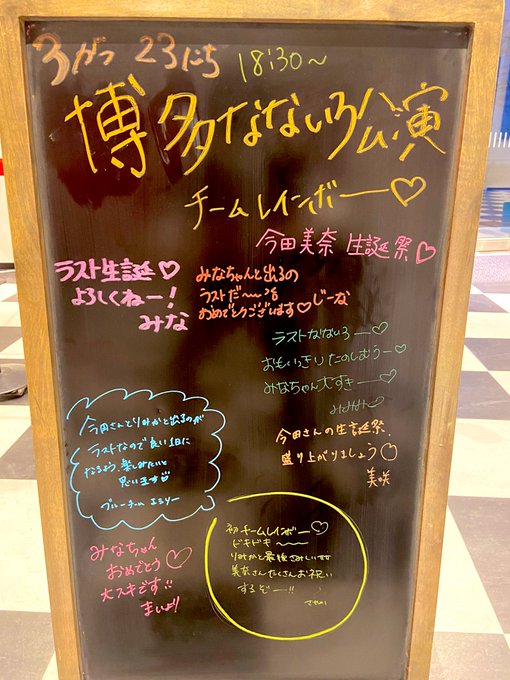 3がつ 23にち 18:30〜
博多なないろ公演
チームレインボー♡
今田美奈 生誕祭♡
ラスト生誕♡
よろしくねー!
みな
みなちゃんと出るの
ラストだ〜〜
おめでとうございます♡じーな
ラストなないろー♡
おもいっきりたのしむうー♡
みなちゃん大すきー♡
今田さんの生誕祭
盛り上がりましょう
美咲
今田さんとりみかと出るのが
ラストなので良い1日に
なるよう、楽しみたいと
思います
ブルーチーム
みなちゃん
おめでとう♡
大スキです!!
まいより
初チームレインボー♡
ドキドキ〜〜
りみかと最後さみしい
美奈さんたくさんお祝い
するぞー!!